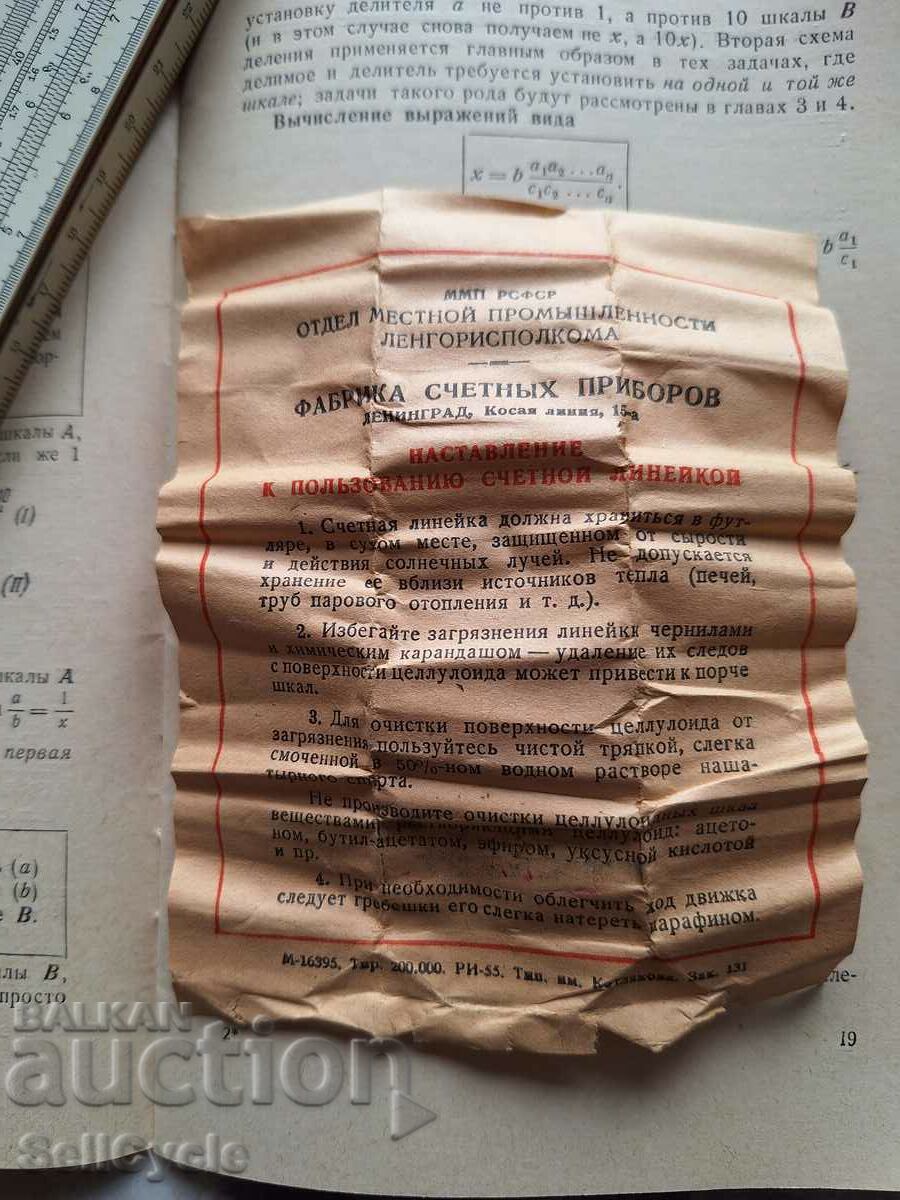 установку делителя a не против 1, а против 10 шкалы B
(и в этом случае снова получаем не x, а 10x). Вторая схема
деления применяется главным образом в тех задачах, где
делимое и делитель требуется установить на одной и той же
шкале; задачи такого рода будут рассмотрены в главах 3 и 4.
Вычисление выражений вида
x = b a₁a₂ ... aₙ / c₁c₂ ... cₙ.
b a₁ / c₁
ММП РСФСР
ОТДЕЛ МЕСТНОЙ ПРОМЫШЛЕННОСТИ
ЛЕНГОРИСПОЛКОМА
ФАБРИКА СЧЕТНЫХ ПРИБОРОВ
ЛЕНИНГРАД, Косая линия, 15-а
НАСТАВЛЕНИЕ
К ПОЛЬЗОВАНИЮ СЧЕТНОЙ ЛИНЕЙКОЙ
1. Счетная линейка должна храниться в фут-
ляре, в сухом месте, защищенном от сырости
и действия солнечных лучей. Не допускается
хранение ее вблизи источников тепла (печей,
труб парового отопления и т. д.).
2. Избегайте загрязнения линейки чернилами
и химическим карандашом — удаление их следов
с поверхности целлулоида может привести к порче
шкал.
3. Для очистки поверхности целлулоида от
загрязнения пользуйтесь чистой тряпкой, слегка
смоченной в 50%-ном водном растворе наша-
тырного спирта.
Не производите очистки целлулоидных шкал
веществами, растворяющими целлулоид: ацето-
ном, бутил-ацетатом, эфиром, уксусной кислотой
и пр.
4. При необходимости облегчить ход движка
следует гребешки его слегка натереть парафином.
М-16395, Тир. 200.000. РИ-55. Тип. им. Котлякова. Зак. 131
2*
19
шкалы A,
ли же 1
(I)
(II)
шкалы A
a / b = 1 / x
первая
(a)
(b)
е B.
алы B,
просто
ле-
BALKAN
auction
SellCycle